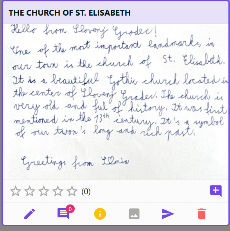 THE CHURCH OF ST. ELISABETH
Hello from Slovenj Gradec!
One of the most important landmarks in
our town is the church of St. Elisabeth.
It is a beautiful Gothic church located in
the center of Slovenj Gradec. The church is
very old and full of history. It was first
mentioned in the 13th century. It's a symbol
of our town's long and rich past.
Greetings from
(0)
0